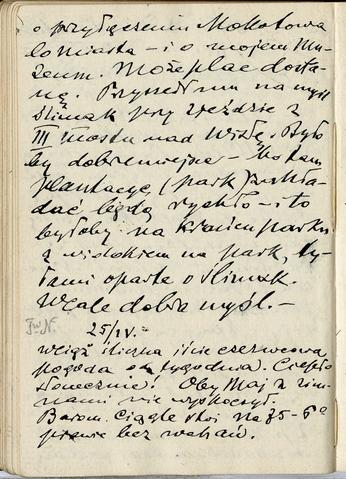 o przyłączeniu Mokotowa
do miasta – i o mojem Mu-
zeum. Może plac dosta-
nę. Przyszedł mu na myśl
Ślimak przy zjeździe z
III mostu nad Wisłę. Było
by dobre miejsce – bo tam
plantacye (park) zakła-
dać będą rychło – i to
byłoby na krańcu parku
z widokiem na park, ty-
łami oparte o ślimak.
Wcale dobra myśl. –
25/IV. –
Wciąż śliczna iście czerwcowa
pogoda tygodnia. Ciepło
słonecznie! Oby Maj z zim-
nami nie wyskoczył.
Barom. ciągle stoi na 75-6
prawie bez wahań.